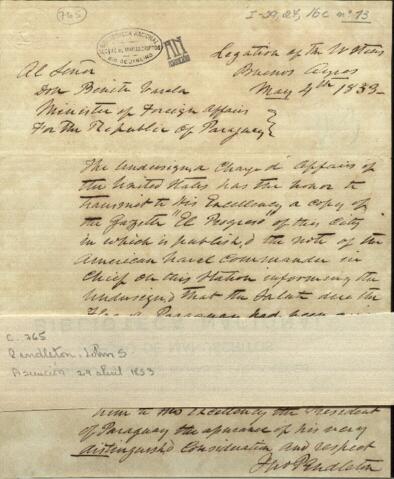 765
I-29, 24, 16 c nº 13
BIBLIOTHECA NACIONAL
RIO DE JANEIRO
Legation of the U States
Buenos Ayres
May 4th 1853
Al Señor
Don Benito Varela
Minister of Foreign Affairs
For the Republic of Paraguay
The Undersign,d Chargé d' Affairs of
the United States has the honor to
transmit to his Excellency a copy of
the Gazette "El Progreso" of this City
in which is publish,d the note of the
American Naval Commander in
Chief on this Station informing the
Undersign,d that the Salute due the
Flag of Paraguay had been
C. 765
Pendleton, John S
Asunción 29 abril 1853
him to His Excellency the President
of Paraguay the assurance of his very
distinguish,d Consideration and respect
Jno Pendleton